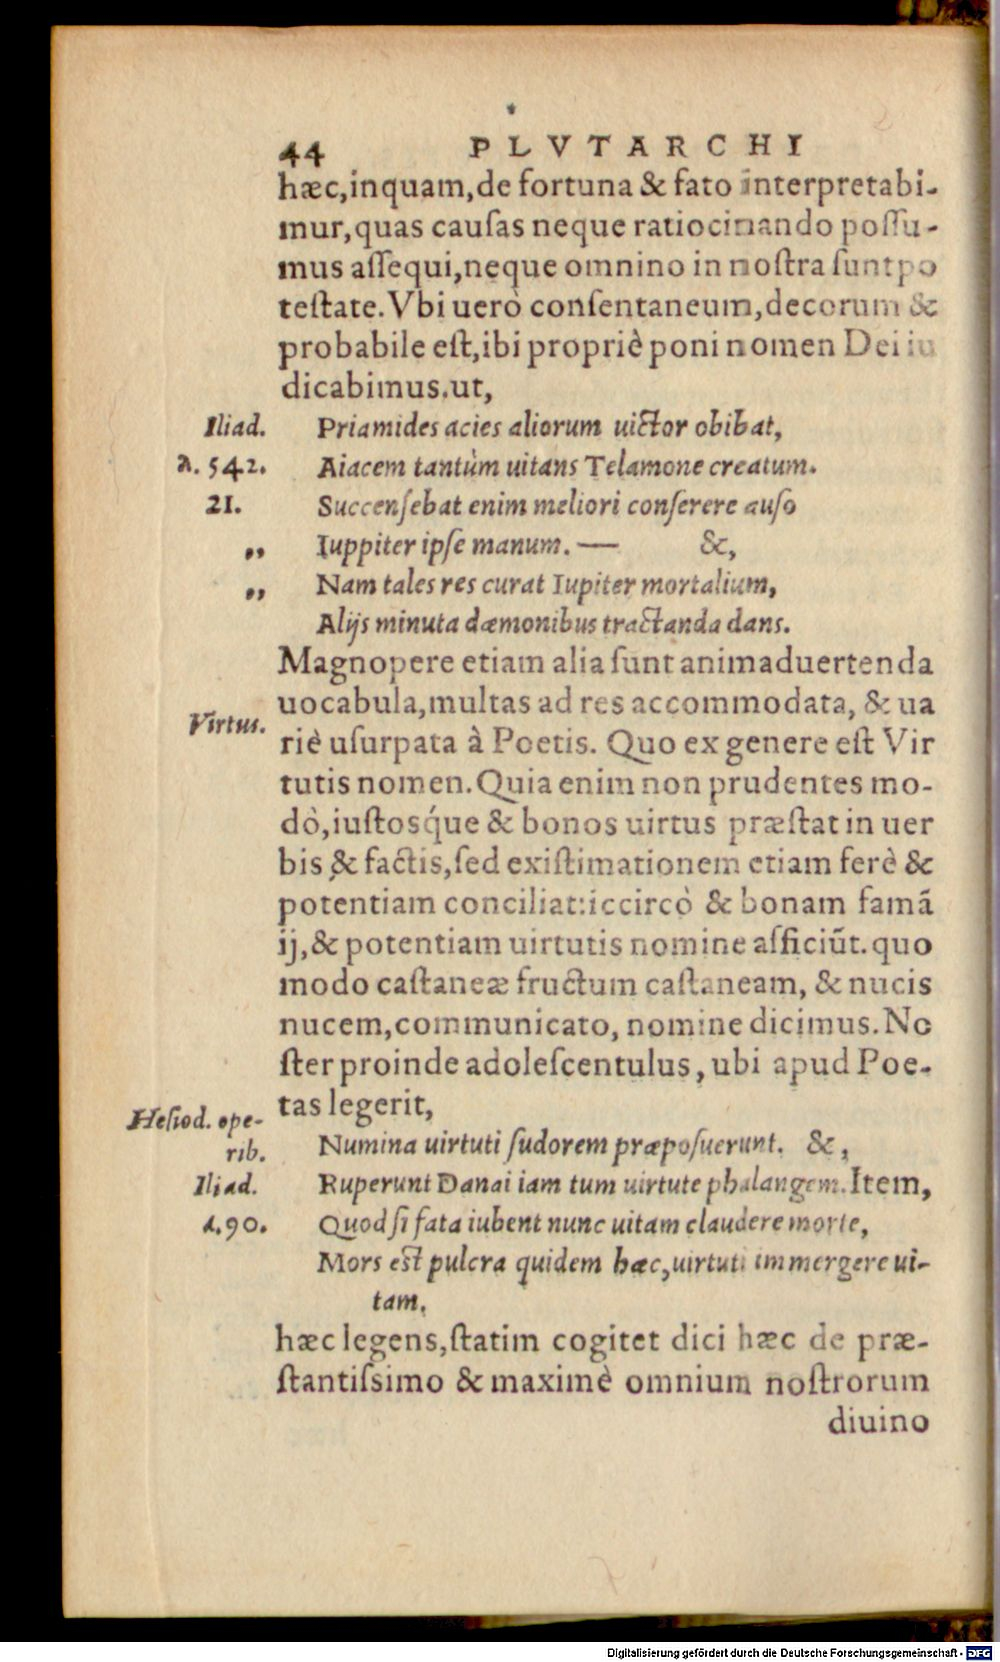 44 PLVTARCHI
hæc, inquam, de fortuna & fato interpretabi-
mur, quas cauſas neque ratiocinando poſſu-
mus aſſequi, neque omnino in noſtra ſunt po
teſtate. Vbi uerò conſentaneum, decorum &
probabile eſt, ibi propriè poni nomen Dei iu
dicabimus. ut,
Iliad. Priamides acies aliorum uictor obibat,
λ. 542. Aiacem tantùm uitans Telamone creatum.
21. Succenſebat enim meliori conſerere auſo
„ Iuppiter ipſe manum. — &,
„ Nam tales res curat Iupiter mortalium,
Alijs minuta dæmonibus tractanda dans.
Magnopere etiam alia ſunt animaduertenda
uocabula, multas ad res accommodata, & ua
Virtus. riè uſurpata à Poetis. Quo ex genere eſt Vir
tutis nomen. Quia enim non prudentes mo-
dò, iuſtosq́ue & bonos uirtus præſtat in uer
bis & factis, ſed exiſtimationem etiam ferè &
potentiam conciliat: iccircò & bonam famã
ij, & potentiam uirtutis nomine afficiũt. quo
modo caſtaneæ fructum caſtaneam, & nucis
nucem, communicato, nomine dicimus. No
ſter proinde adoleſcentulus, ubi apud Poe-
tas legerit,
Heſiod. ope-
rib. Numina uirtuti ſudorem præpoſuerunt. &,
Iliad. Ruperunt Danai iam tum uirtute phalangem. Item,
λ. 90. Quod ſi fata iubent nunc uitam claudere morte,
Mors eſt pulcra quidem hæc, uirtuti immergere ui-
tam.
hæc legens, ſtatim cogitet dici hæc de præ-
ſtantiſsimo & maximè omnium noſtrorum
diuino
Digitalisierung gefördert durch die Deutsche Forschungsgemeinschaft - DFG